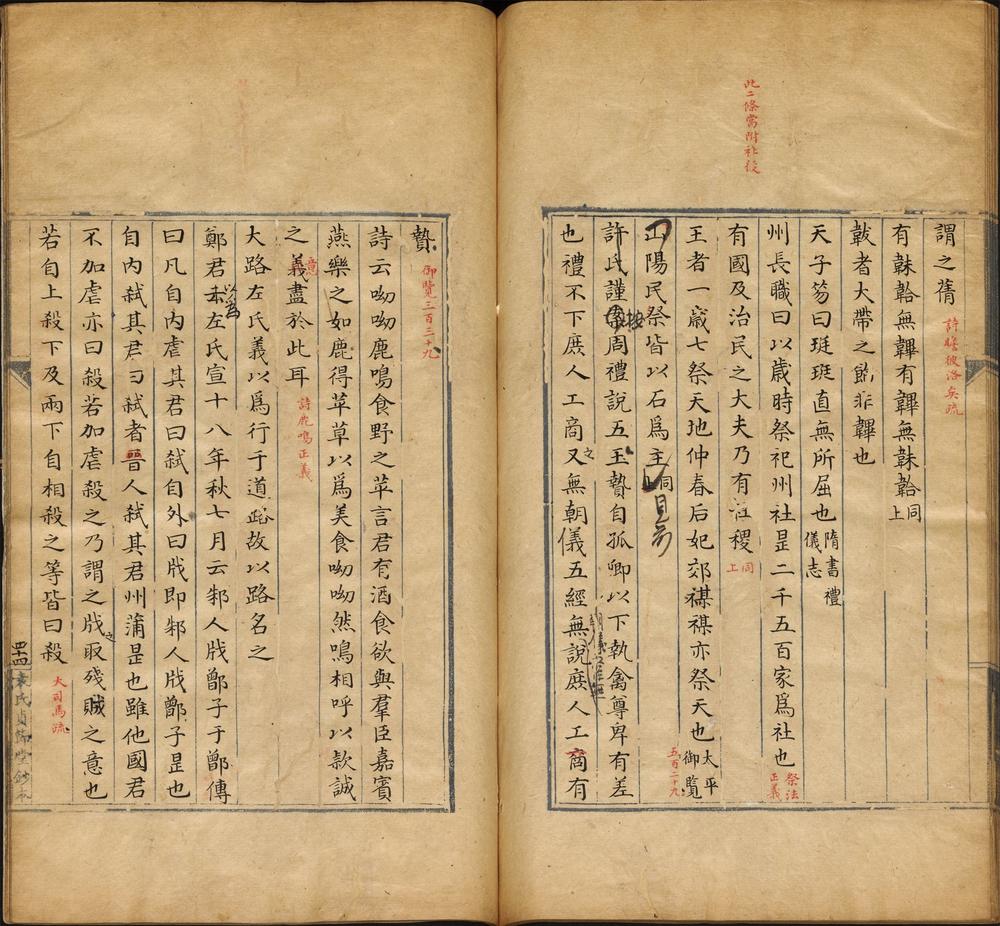 此二條當附社後
謂之蒨 詩瞻彼洛矣疏
有韎韐無韠有韠無韎韐 同上
韍者大帶之飾非韠也
天子笏曰珽珽直無所屈也 隋書禮儀志
州長職曰以歲時祭祀州社是二千五百家為社也 祭法正義
有國及治民之大夫乃有社稷 同上
王者一歲七祭天地仲春后妃郊禖禖亦祭天也 太平御覽 五百二十九
山陽民祭皆以石為主 同上 見前
許氏謹按周禮說五玉贄自孤卿以下執禽尊卑有差
也禮不下庶人工商又無朝儀五經無說庶人工商有
贄 御覽三百三十九
詩云呦呦鹿鳴食野之苹言君有酒食欲與羣臣嘉賓
燕樂之如鹿得苹草以為美食呦呦然鳴相呼以款誠
之意盡於此耳 詩鹿鳴正義
大路左氏義以為行于道路故以路名之
鄭君以為左氏宣十八年秋七月云邾人戕鄫子于鄫傳
曰凡自內虐其君曰弒自外曰戕即邾人戕鄫子是也
自內弒其君曰弒者晉人弒其君州蒲是也雖他國君
不加虐亦曰殺若加虐殺之乃謂之戕之取殘賊之意也
若自上殺下及兩下自相殺之等皆曰殺 大司馬疏
袁氏貞節堂鈔本